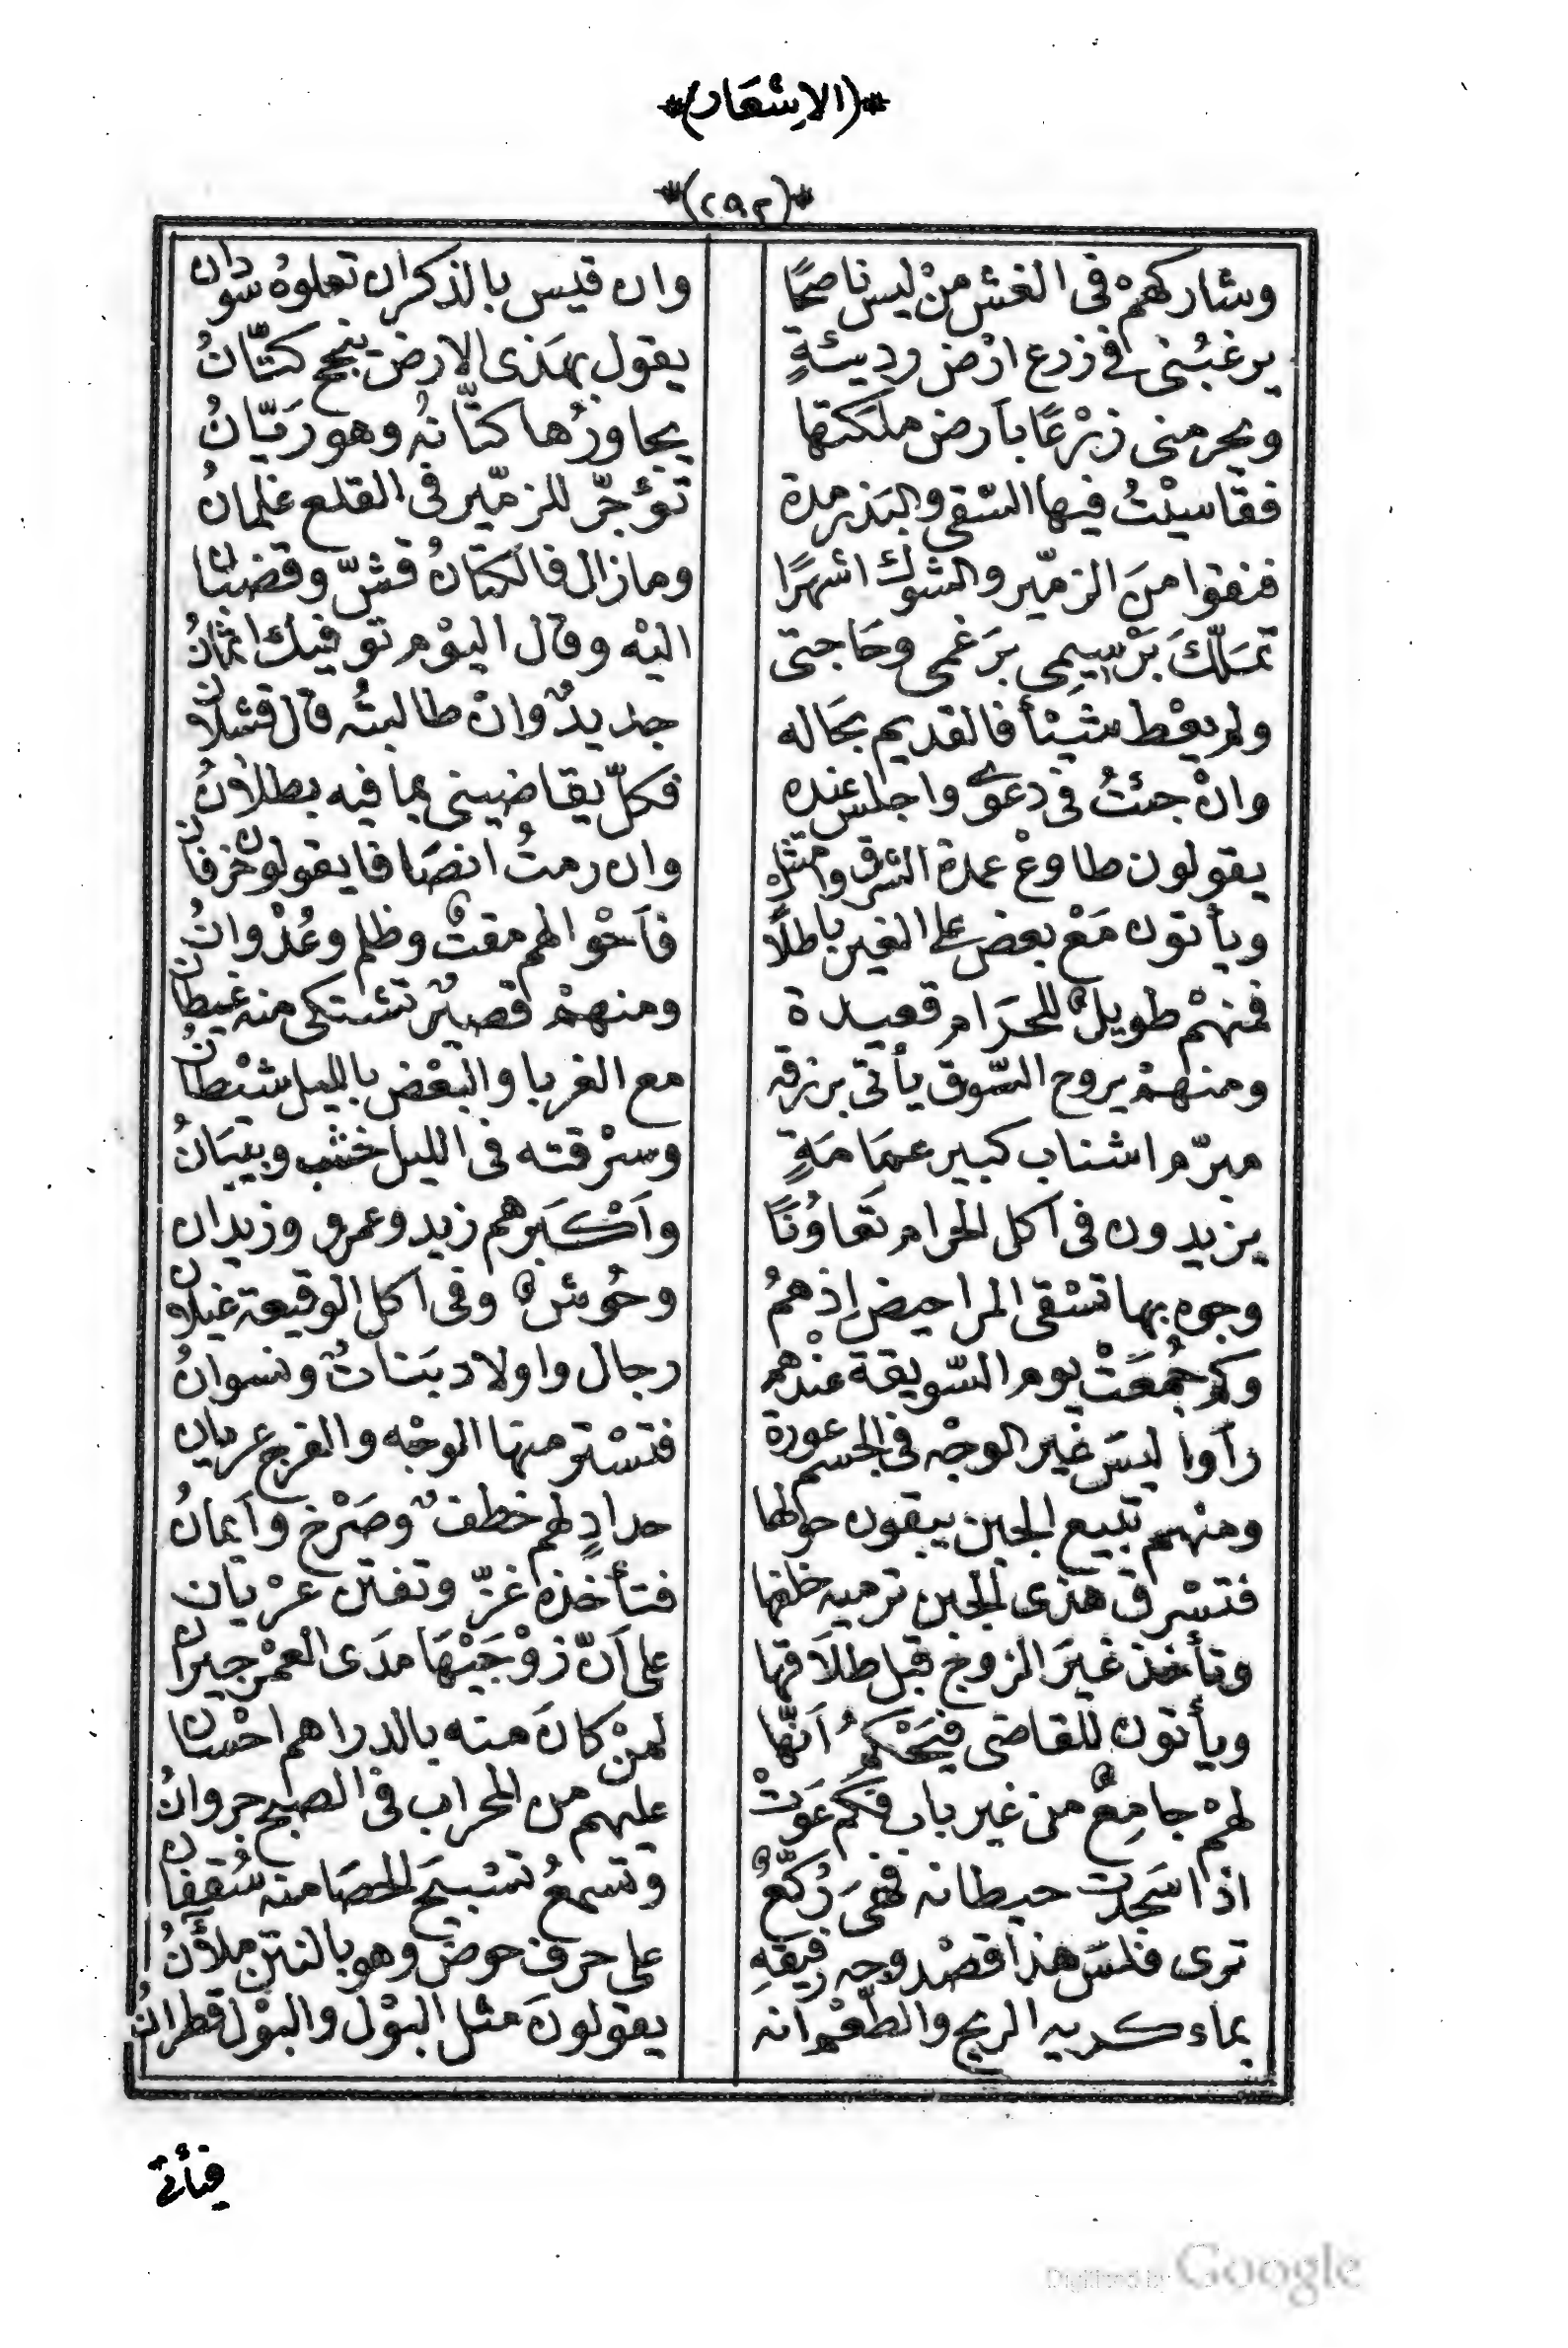 *(الاشعار)*
*(٢٩٢)*
وشاركهمْ فى الغش منْ ليس ناصحًا وان قيس بالذكران تعلوهُ سودان
يرغبُنى فى زرع ارْض رديئةٍ يقول بهَذى الارض ينجح كتّانُ
ويحرمنى زرْعًا بأرض ملكتها يجاورُها كتّانهُ وهو رَيّانُ
فقاسيْتُ فيها السْقى والبَذر مدة تؤجّر للزمّير فى القلع غلمانُ
فنقوا منَ الزمّير والشوك اشهرًا ومازال فالكتانُ قشّ وقضبان
تمَلّكَ بَرْسيمِى برَغمى وحَاجتى اليْه وقال اليوْم توفيك اثمانُ
ولم يعْط شيْئاً فالقديم بحَاله جديدٌ وانْ طالبتُه قال قتلانُ
وانْ جئتُ فى دعوى واجلس عنده فكلّ يقاضينى بما فيه بطلانُ
يقولون طاوعْ عمدة الشرق وامتثلْ وان رمتُ انصَافا يقولون خرفان
ويأتون مَعْ بعض على الغير باطلًا فأحْوالهم مقتٌ وظلم وعُدْوانُ
فمنهمْ طويلٌ للحرَام قعيدة ومنهمْ قصيرٌ تشتكى منه غيطان
ومنهمْ يروح السّوق يأتى برزقه مع الغربا والبعْض بالليل شيْطانُ
مبرّم اشناب كبير عمَامَةٍ وسرْقته فى الليل خشب وتيبَانُ
يزيدون فى اكل الحرام تَعاوُنًا وأكْبَرهم زيد وعمرو وزيدان
وجوه بها تسْقى المراحيض اذهمُ وحُوشٌ وفى اكل الوقيعة غيلان
وكم جُمعَتْ يوم السّويقة عنْدهم رجال واولاد بَناتٌ ونسوانُ
رأوا ليسَ غير الوجْه فى الجسم عورة فتسْتر منها الوجْه والفرج عريان
ومنْهم تبيع الجبن يبقون حولها حدادٍ لهم خطفٌ وصَرْخ وأيمانُ
فتسْرق هذى الجبن ترميه خلفها فتأخذه غزّ وتفتن عرْبان
وتأخذ غيرَ الزوج قبل طلَاقها على أنّ زوْجَيْهَا مدَى العمْر جيرانُ
ويأتون للقاضى فيَحْكمُ أنّها لمنْ كانَ منه بالدراهم احْسان
لهمْ جامِعٌ من غير باب فكم عَوَتْ عليهم من المحراب فى الصبح جروانُ
اذا سَجدت حيطانه فهىَ رُكّعٌ وتسمعُ تسْبيحَ الحصَا منه سُقفانُ
ترى فلسَ هذا قصْد وجه رفيقهِ على حرف حوض وهو بالنتن ملآنُ
بماء كريه الريح والطّعْم انه يقولونَ مثل البوْل والبوْل قطرانُ
فيأتى
Digitized by Google